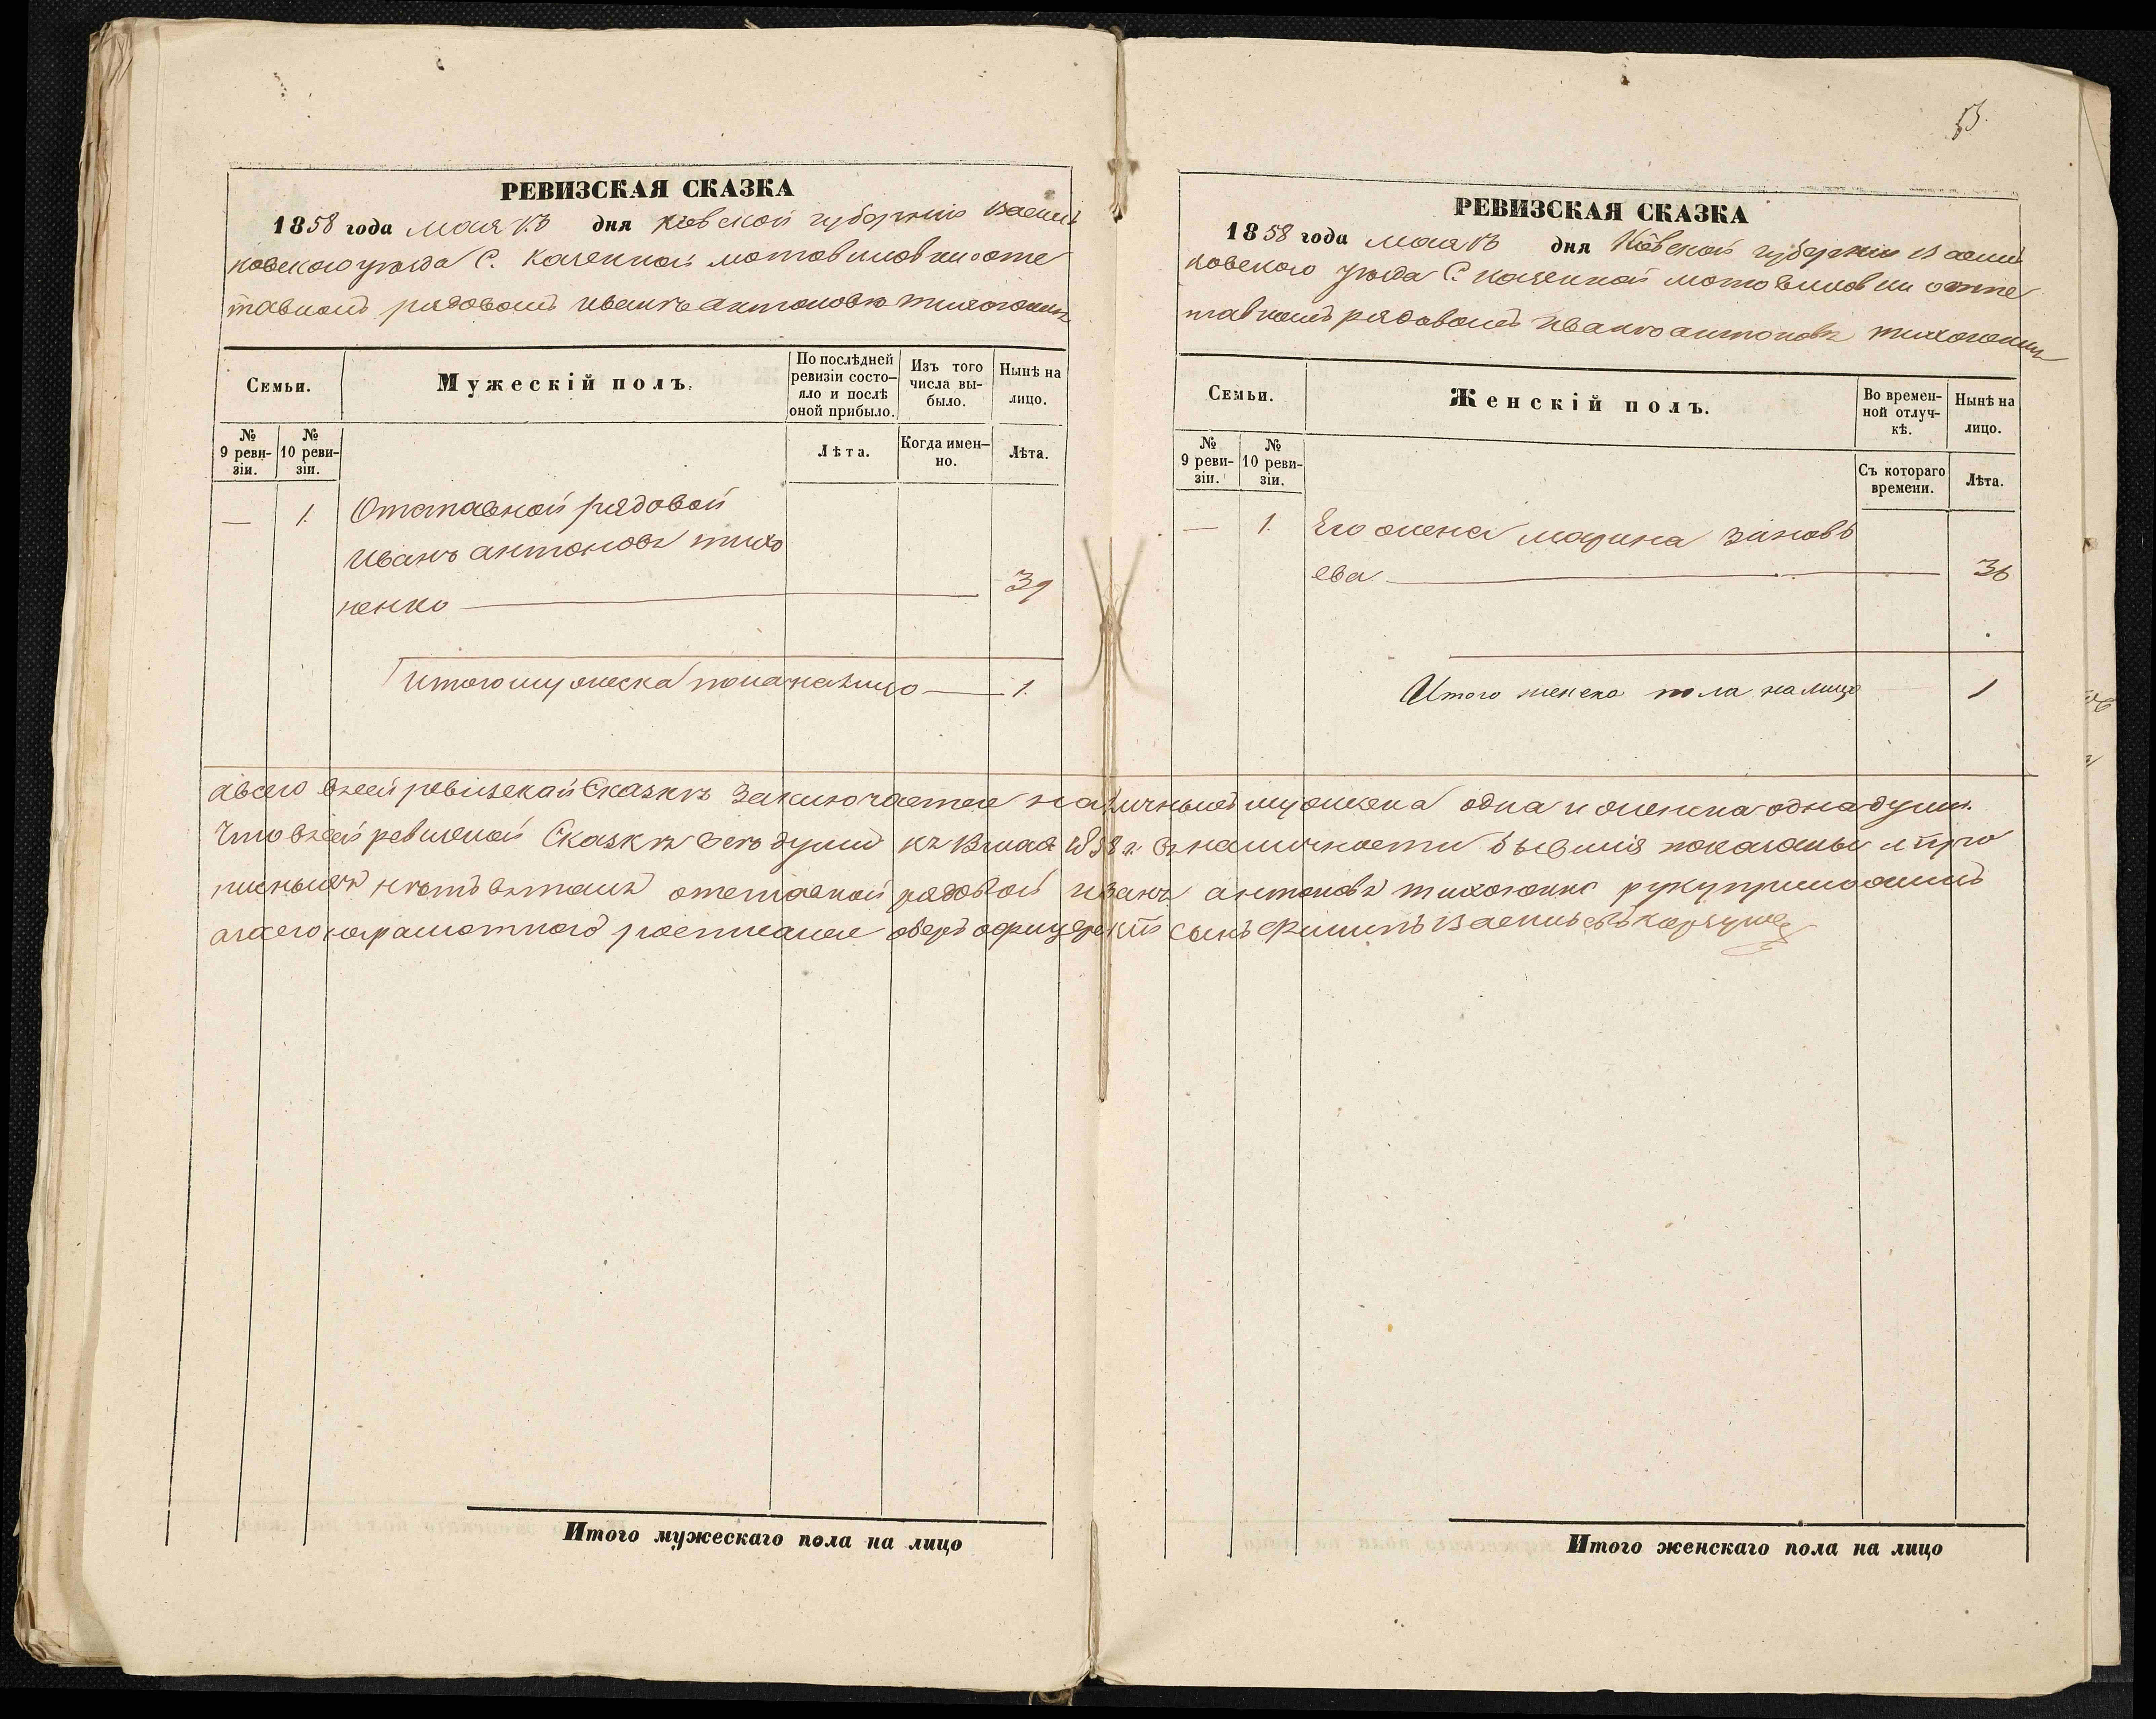 РЕВИЗСКАЯ СКАЗКА
1858 года мая дня Кіевской губерніи Василь
ковского уезда С. казенной мотовиловки о отс
тавном рядовом Иване антонове тихоненке
Семьи.
Мужескій полъ.
По послѣдней ревизіи состо-
яло и послѣ
оной прибыло.
Изъ того
числа вы-
было.
Нынѣ на
лицо.
№
9 реви-
зіи.
№
10 реви-
зіи.
Лѣта.
Когда имен-
но.
Лѣта.
— 1. Отставной рядовой
Иванъ антоновъ тихо
ненко 39
Итого мужеска пола на лицо — 1.
Итого мужескаго пола на лицо
РЕВИЗСКАЯ СКАЗКА
1858 года мая дня Кіевской губерніи Василь
ковского уезда С. казенной мотовиловки отс
тавном рядовом Иване антонове тихоненке
Семьи.
Женскій полъ.
Во времен-
ной отлуч-
кѣ.
Нынѣ на
лицо.
№
9 реви-
зіи.
№
10 реви-
зіи.
Съ котораго
времени.
Лѣта.
— 1. Его жена марина зіновъ
ева 36
Итого женска пола на лицо 1
авсего въсей ревизской Сказкѣ заключается наличныхъ мужеска одна и женска одна душ
Что въсей ревизской Сказкѣ всѣ души къ мая 1858 г. въ наличности бывшія показаны и про
писныхъ нѣтъ вътомъ отставной рядовой Иванъ антоновъ тихоненко руку приложилъ
а за его неграмотного росписался оберъ офицерскій сынъ Филипъ Васильевъ
Итого женскаго пола на лицо